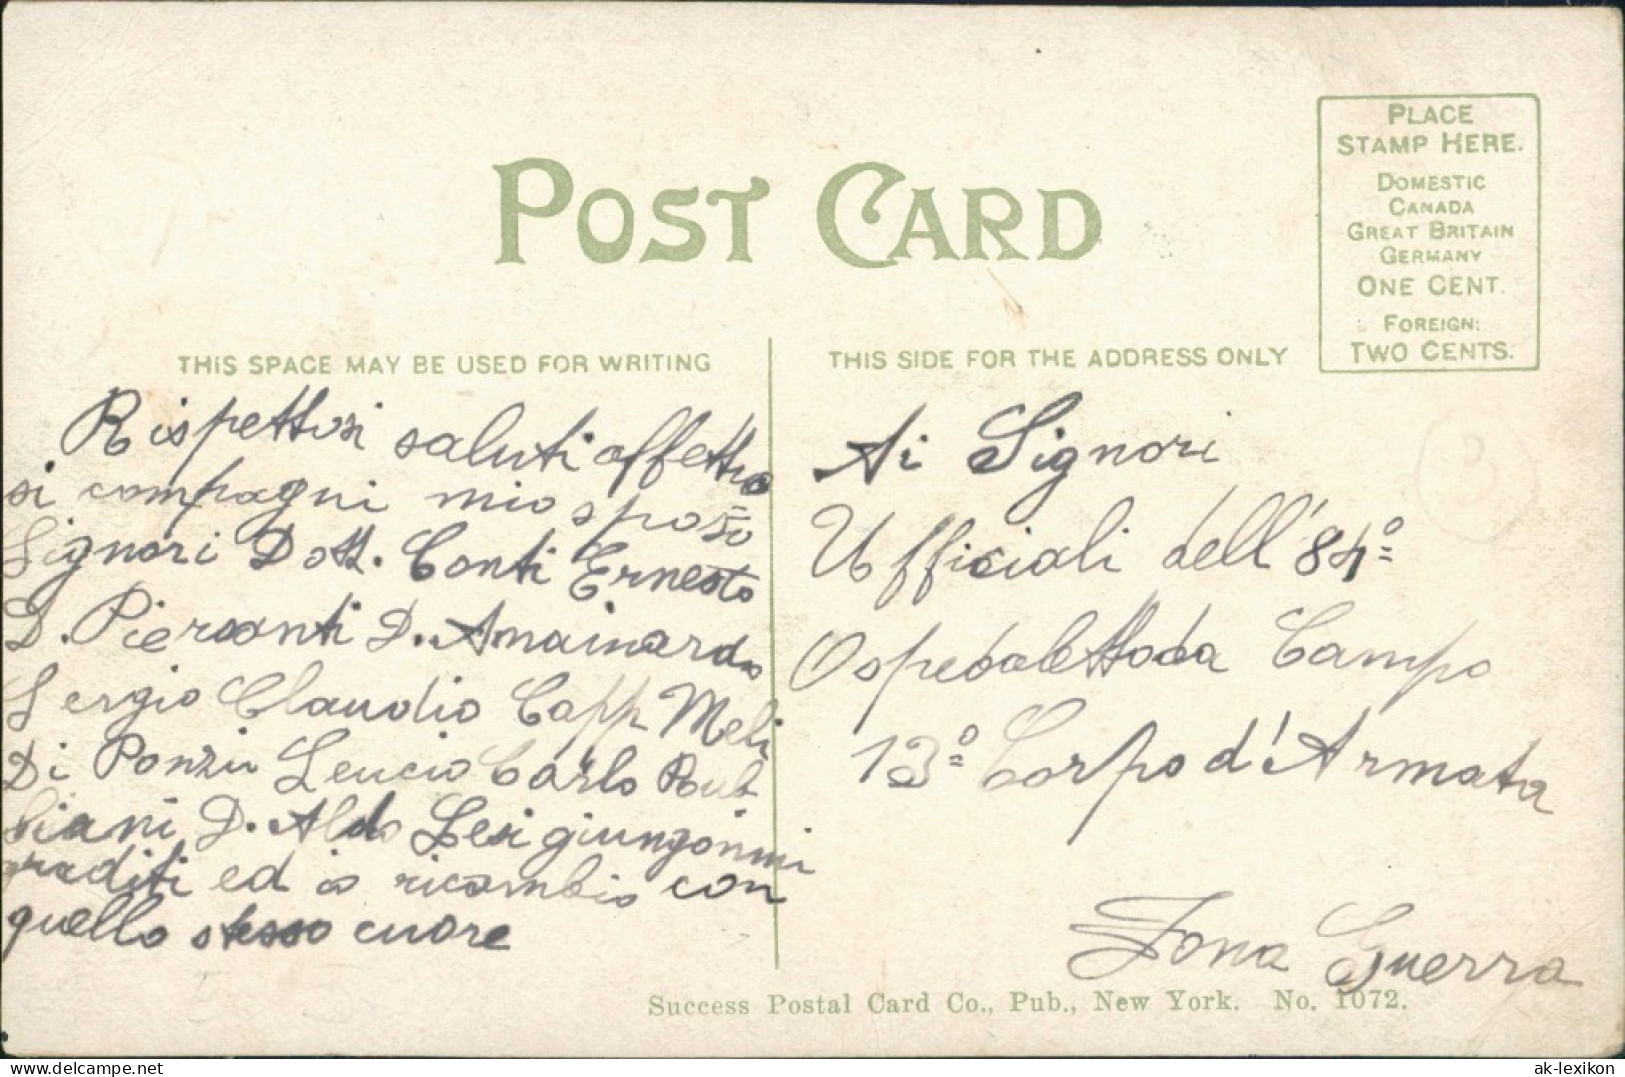 POST CARD
PLACE
STAMP HERE.
DOMESTIC
CANADA
GREAT BRITAIN
GERMANY
ONE CENT.
FOREIGN:
TWO CENTS.
THIS SPACE MAY BE USED FOR WRITING
Rispettosi saluti affettuo
si compagni mio sposo
Signori Dott. Conti Ernesto
D. Piersanti D. Amainardo
Sergio Claudio Capp Meli
Di Ponziu Leucio Carlo
D. Aldo Lesi giungonmi
graditi ed io ricambio con
quello stesso cuore
THIS SIDE FOR THE ADDRESS ONLY
Ai Signori
Ufficiali dell' 84º
Ospedaletto da Campo
13º Corpo d'Armata
Zona Guerra
Success Postal Card Co., Pub., New York. No. 1072.
www.delcampe.net
ak-lexikon